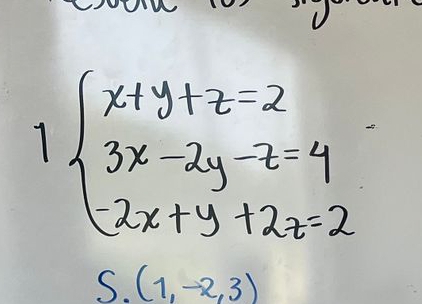 1
x+y+z=2
3x-2y-z=4
-2x+y+2z=2
S.(1,-2,3)